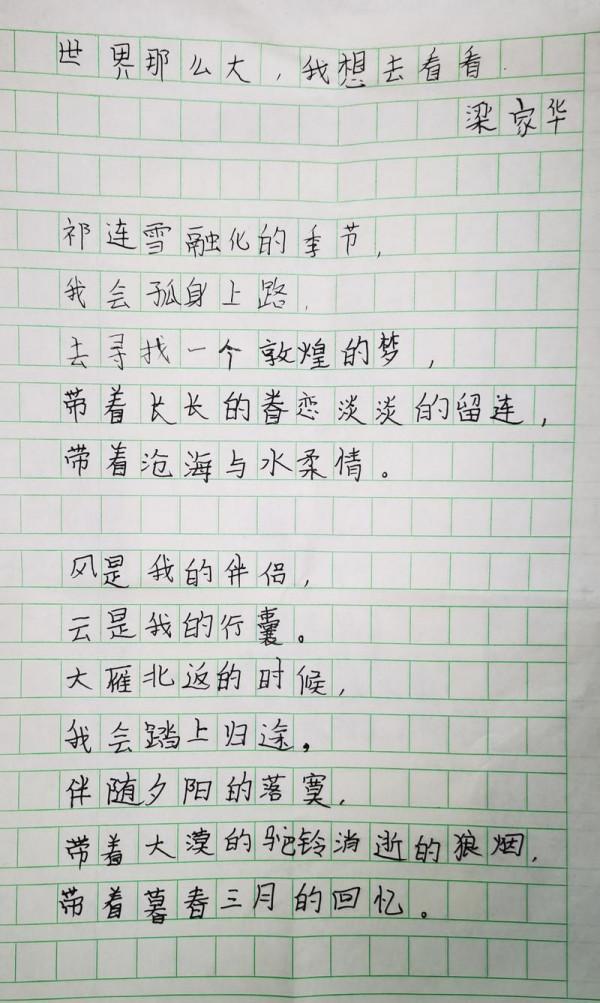 世界那么大,我想去看看.
梁家华
祁连雪融化的季节,
我会孤身上路.
去寻找一个敦煌的梦,
带着长长的眷恋淡淡的留连,
带着沧海与水柔情。
风是我的伴侣,
云是我的行囊。
大雁北返的时候,
我会踏上归途,
伴随夕阳的落寞,
带着大漠的驼铃消逝的狼烟,
带着暮春三月的回忆。